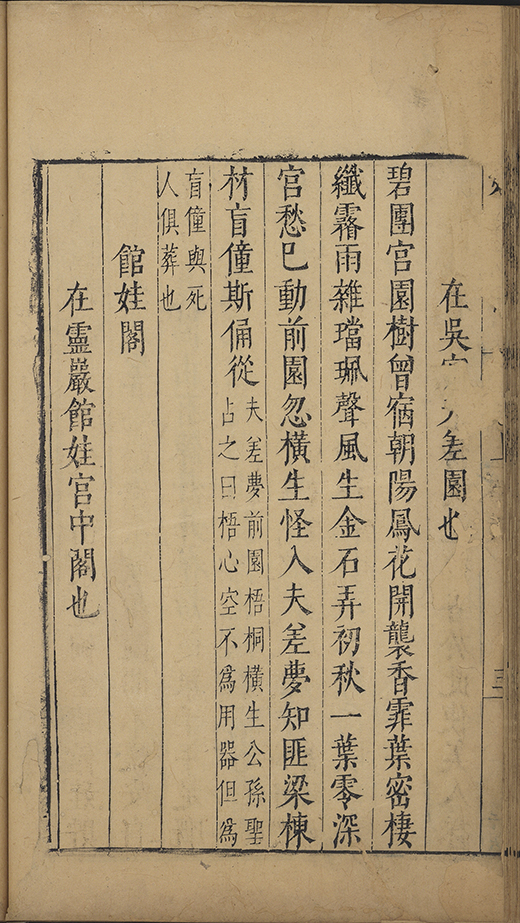 在吳宫夫差園也
碧團宫園樹曾宿朝陽鳳花開襲香霏葉密棲
纖霧雨雜璫珮聲風生金石弄初秋一葉零深
宫愁已動前園忽橫生怪入夫差夢知匪梁棟
材盲僮斯俑從
夫差夢前園梧桐橫生公孫聖
占之曰梧心空不爲用器但爲
盲僮與死
人俱葬也
館娃閣
在靈巖館娃宫中閣也